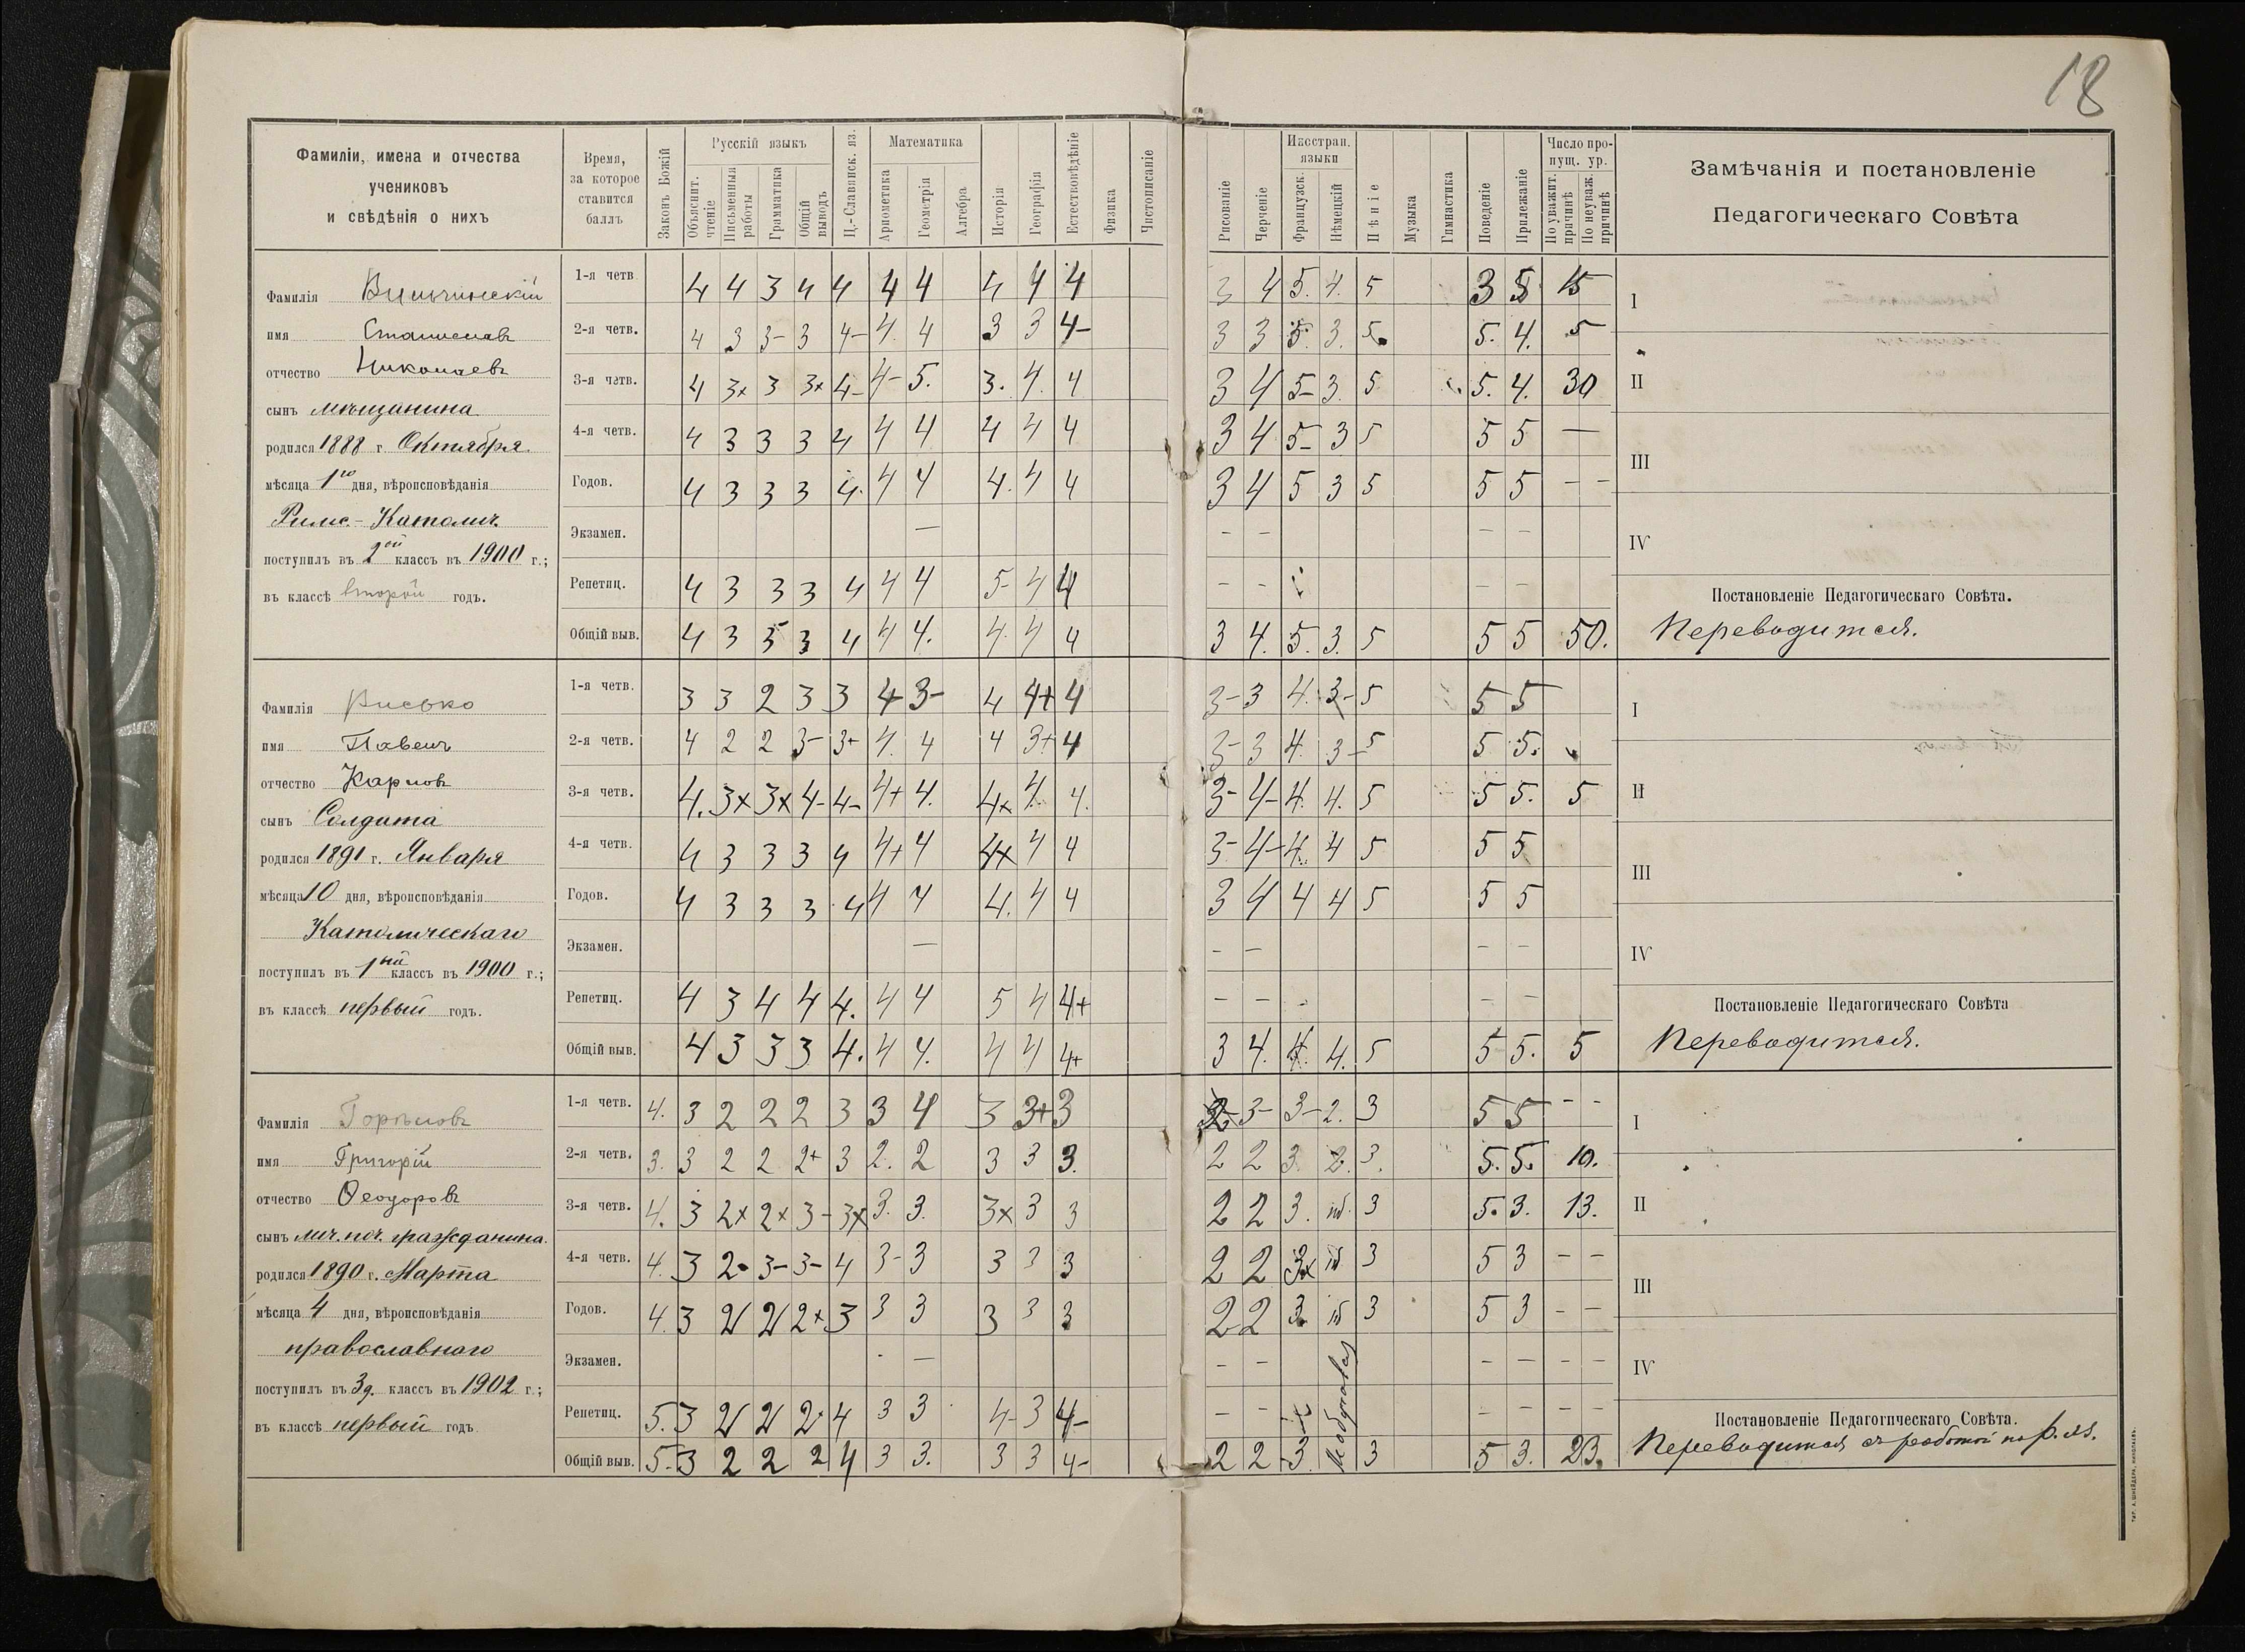 18
Фамиліи, имена и отчества
учениковъ
и свѣдѣнія о нихъ
Время,
за которое
ставится
баллъ
Законъ Божій
Русскій языкъ
Объяснит. чтеніе
Письменныя работы
Грамматика
Общій выводъ
Ц.-Славянск. яз.
Математика
Ариѳметика
Геометрія
Алгебра
Исторія
Географія
Естествовѣдѣніе
Физика
Чистописаніе
Рисованіе
Черченіе
Иностран. языки
Французск.
Нѣмецкій
Пѣніе
Музыка
Гимнастика
Поведеніе
Прилежаніе
Число пропущ. ур.
По уважит. причинѣ
По неуваж. причинѣ
Замѣчанія и постановленіе
Педагогическаго Совѣта
Фамилія
имя Станиславъ
отчество Николаевъ
сынъ мѣщанина
родился 1888 г. Октября
мѣсяца 1го дня, вѣроисповѣданія
Римс.-Католич.
поступилъ въ 2ой классъ въ 1900 г.;
въ классѣ второй годъ.
1-я четв. 4 4 3 4 4 4 4 4 4 4 3 4 5. 4. 5 3 5 15
2-я четв. 4 3 3- 3 4- 4. 4 3 3 4- 3 3 5. 3. 5. 5. 4. 5
3-я четв. 4 3× 3 3× 4- 4- 5. 3. 4. 4 3 4 5- 3. 5 5. 4. 30
4-я четв. 4 3 3 3 4 4 4 4 4 4 3 4 5- 3 5 5 5 —
Годов. 4 3 3 3 4. 4 4 4. 4 4 3 4 5 3 5 5 5 - -
Экзамен. — - - - -
Репетиц. 4 3 3 3 4 4 4 5- 4 4 - - - -
Общій выв. 4 3 3 3 4 4 4. 4. 4 4 3 4. 5. 3. 5 5 5 50.
I
II
III
IV
Постановленіе Педагогическаго Совѣта.
Переводится.
Фамилія Висько
имя Павелъ
отчество Карловъ
сынъ Солдата
родился 1891 г. Января
мѣсяца 10 дня, вѣроисповѣданія
Католическаго
поступилъ въ 1ый классъ въ 1900 г.;
въ классѣ первый годъ.
1-я четв. 3 3 2 3 3 4 3- 4 4+ 4 3- 3 4. 3- 5 5 5
2-я четв. 4 2 2 3- 3+ 4. 4 4 3+ 4 3- 3 4. 3- 5 5 5.
3-я четв. 4. 3× 3× 4- 4- 4+ 4. 4× 4. 4. 3- 4- 4. 4. 5 5 5. 5
4-я четв. 4 3 3 3 4 4+ 4 4× 4 4 3- 4- 4. 4 5 5 5
Годов. 4 3 3 3 4 4 4 4. 4 4 3 4 4 4 5 5 5
Экзамен. — - - - -
Репетиц. 4 3 4 4 4. 4 4 5 4 4+ - - - - -
Общій выв. 4 3 3 3 4. 4 4. 4 4 4+ 3 4. 4. 4. 5 5 5. 5
I
II
III
IV
Постановленіе Педагогическаго Совѣта
Переводится.
Фамилія
имя Григорій
отчество Ѳеодоровъ
сынъ лич. поч. гражданина.
родился 1890 г. Марта
мѣсяца 4 дня, вѣроисповѣданія
православнаго
поступилъ въ 3й. классъ въ 1902 г.;
въ классѣ первый годъ
1-я четв. 4. 3 2 2 2 3 3 4 3 3+ 3 3- 3- 2. 3 5 5 - -
2-я четв. 3. 3 2 2 2+ 3 2. 2 3 3 3. 2 2 3. 2. 3. 5. 5. 10.
3-я четв. 4. 3 2× 2× 3- 3× 3. 3. 3× 3 3 2 2 3. 3 5. 3. 13.
4-я четв. 4. 3 2- 3- 3- 4 3- 3 3 3 3 2 2 3× 3 5 3 - -
Годов. 4. 3 2 2 2+ 3 3 3 3 3 3 2 2 3. 3 5 3 - -
Экзамен. — - - - - - -
Репетиц. 5. 3 2 2 2+ 4 3 3 4- 3 4- - - - - - -
Общій выв. 5. 3 2 2 2 4 3 3. 3 3 4- 2 2 3. 3 5 3. 23.
I
II
III
IV
Постановленіе Педагогическаго Совѣта.
Переводится съ работой по р. яз.